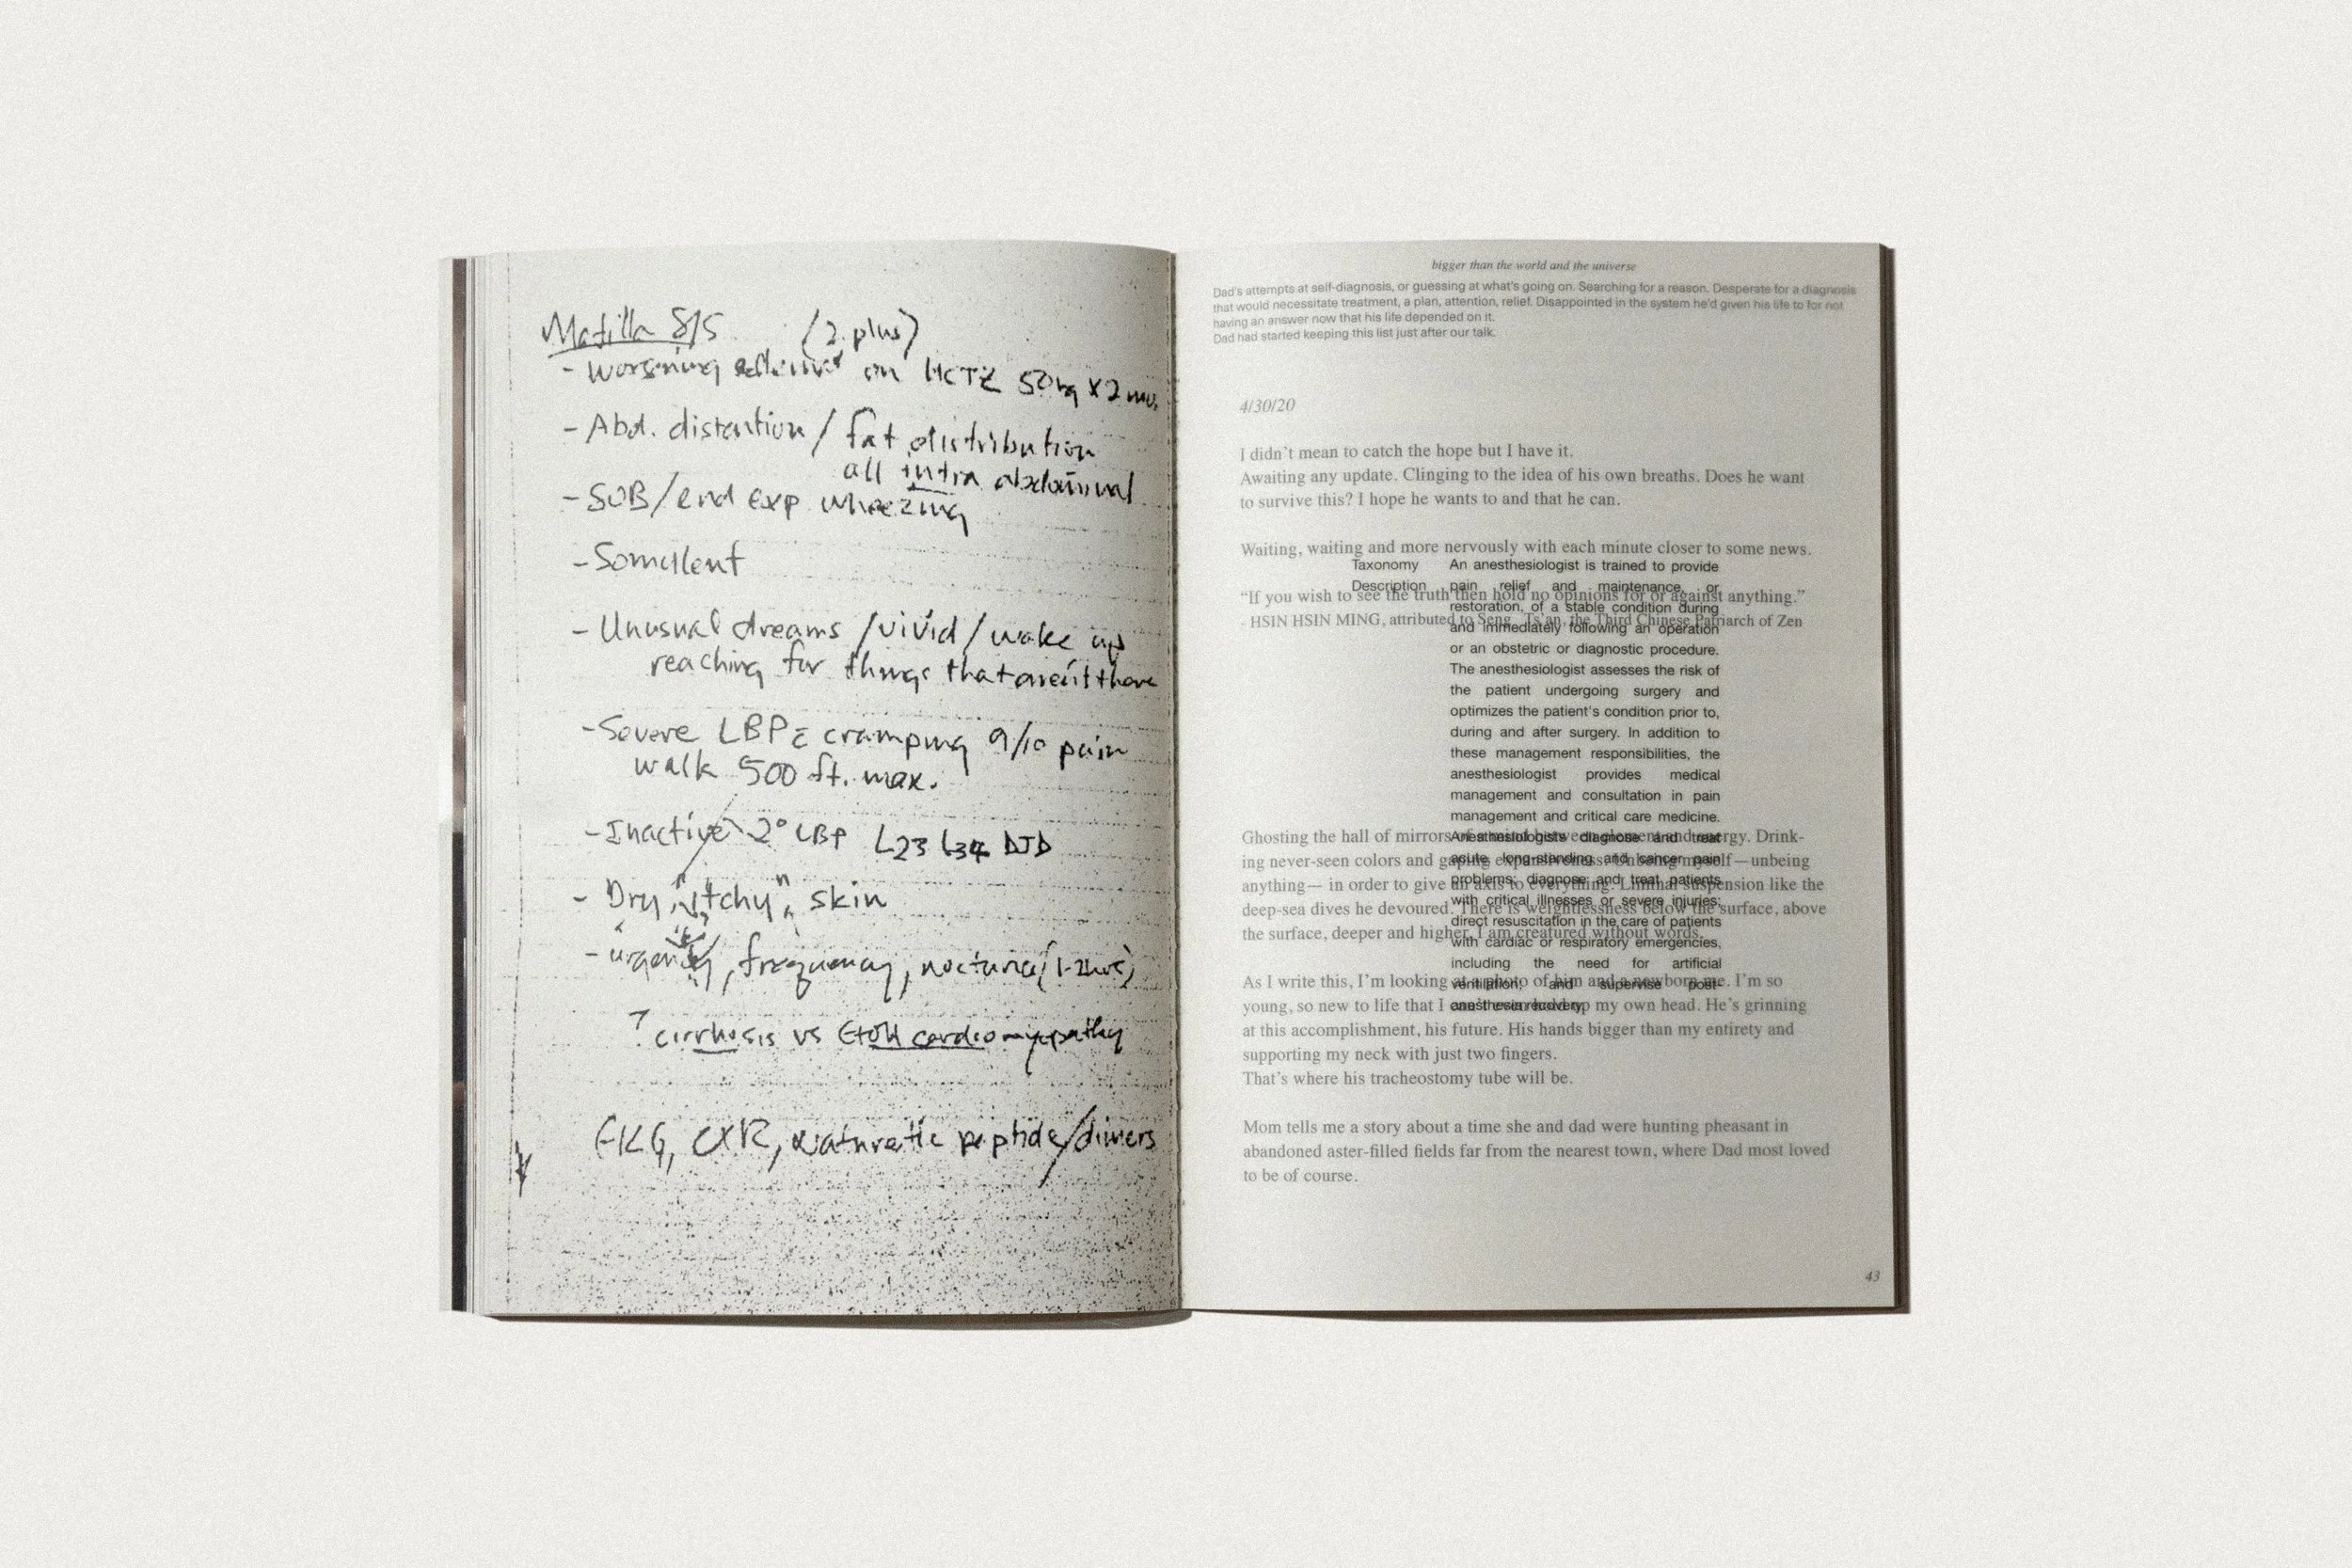 Matilla 8/5 (2 plus)
- Worsening edema on HCTZ 50mg x 2 mo.
- Abd. distention / fat distribution
all intra abdominal
- SOB/end exp wheezing
- Somullent
- Unusual dreams / vivid / wake up
reaching for things that aren't there
- Severe LBP c cramping 9/10 pain
walk 500 ft. max.
- Inactive 2° LBP L23 L34 DJD
- Dry, "itchy" skin
- urgency, frequency, nocturia (1-2hrs)
? cirrhosis vs EtOH cardiomyopathy
EKG, CXR, natuретic peptide/dimers
bigger than the world and the universe
Dad's attempts at self-diagnosis, or guessing at what's going on. Searching for a reason. Desperate for a diagnosis
that would necessitate treatment, a plan, attention, relief. Disappointed in the system he'd given his life to for not
having an answer now that his life depended on it.
Dad had started keeping this list just after our talk.
4/30/20
I didn't mean to catch the hope but I have it.
Awaiting any update. Clinging to the idea of his own breaths. Does he want
to survive this? I hope he wants to and that he can.
Waiting, waiting and more nervously with each minute closer to some news.
"If you wish to see the truth then hold no opinions for or against anything."
- HSIN HSIN MING, attributed to Seng-Ts'an, the Third Chinese Patriarch of Zen
Taxonomy
Description
An anesthesiologist is trained to provide
pain relief and maintenance, or
restoration, of a stable condition during
and immediately following an operation
or an obstetric or diagnostic procedure.
The anesthesiologist assesses the risk of
the patient undergoing surgery and
optimizes the patient's condition prior to,
during and after surgery. In addition to
these management responsibilities, the
anesthesiologist provides medical
management and consultation in pain
management and critical care medicine.
Anesthesiologists diagnose and treat
acute, long-standing and cancer pain
problems; diagnose and treat patients
with critical illnesses or severe injuries;
direct resuscitation in the care of patients
with cardiac or respiratory emergencies,
including the need for artificial
ventilation; and supervise post-
anesthesia recovery.
Ghosting the hall of mirrors of a mind between element and energy. Drink-
ing never-seen colors and gaping expansiveness. Unbeing myself—unbeing
anything— in order to give an axis to everything. Liminal suspension like the
deep-sea dives he devoured. There is weightlessness below the surface, above
the surface, deeper and higher. I am creatured without words.
As I write this, I'm looking at a photo of him and a newborn me. I'm so
young, so new to life that I can't even hold up my own head. He's grinning
at this accomplishment, his future. His hands bigger than my entirety and
supporting my neck with just two fingers.
That's where his tracheostomy tube will be.
Mom tells me a story about a time she and dad were hunting pheasant in
abandoned aster-filled fields far from the nearest town, where Dad most loved
to be of course.
43